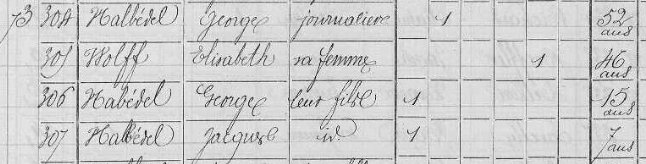 73 304 Halbédel George journalier 1 52 ans
305 Wolff Elisabeth sa femme 1 46 ans
306 Habédel George leur fils 1 15 ans
307 Halbédel Jacques id. 1 7 ans